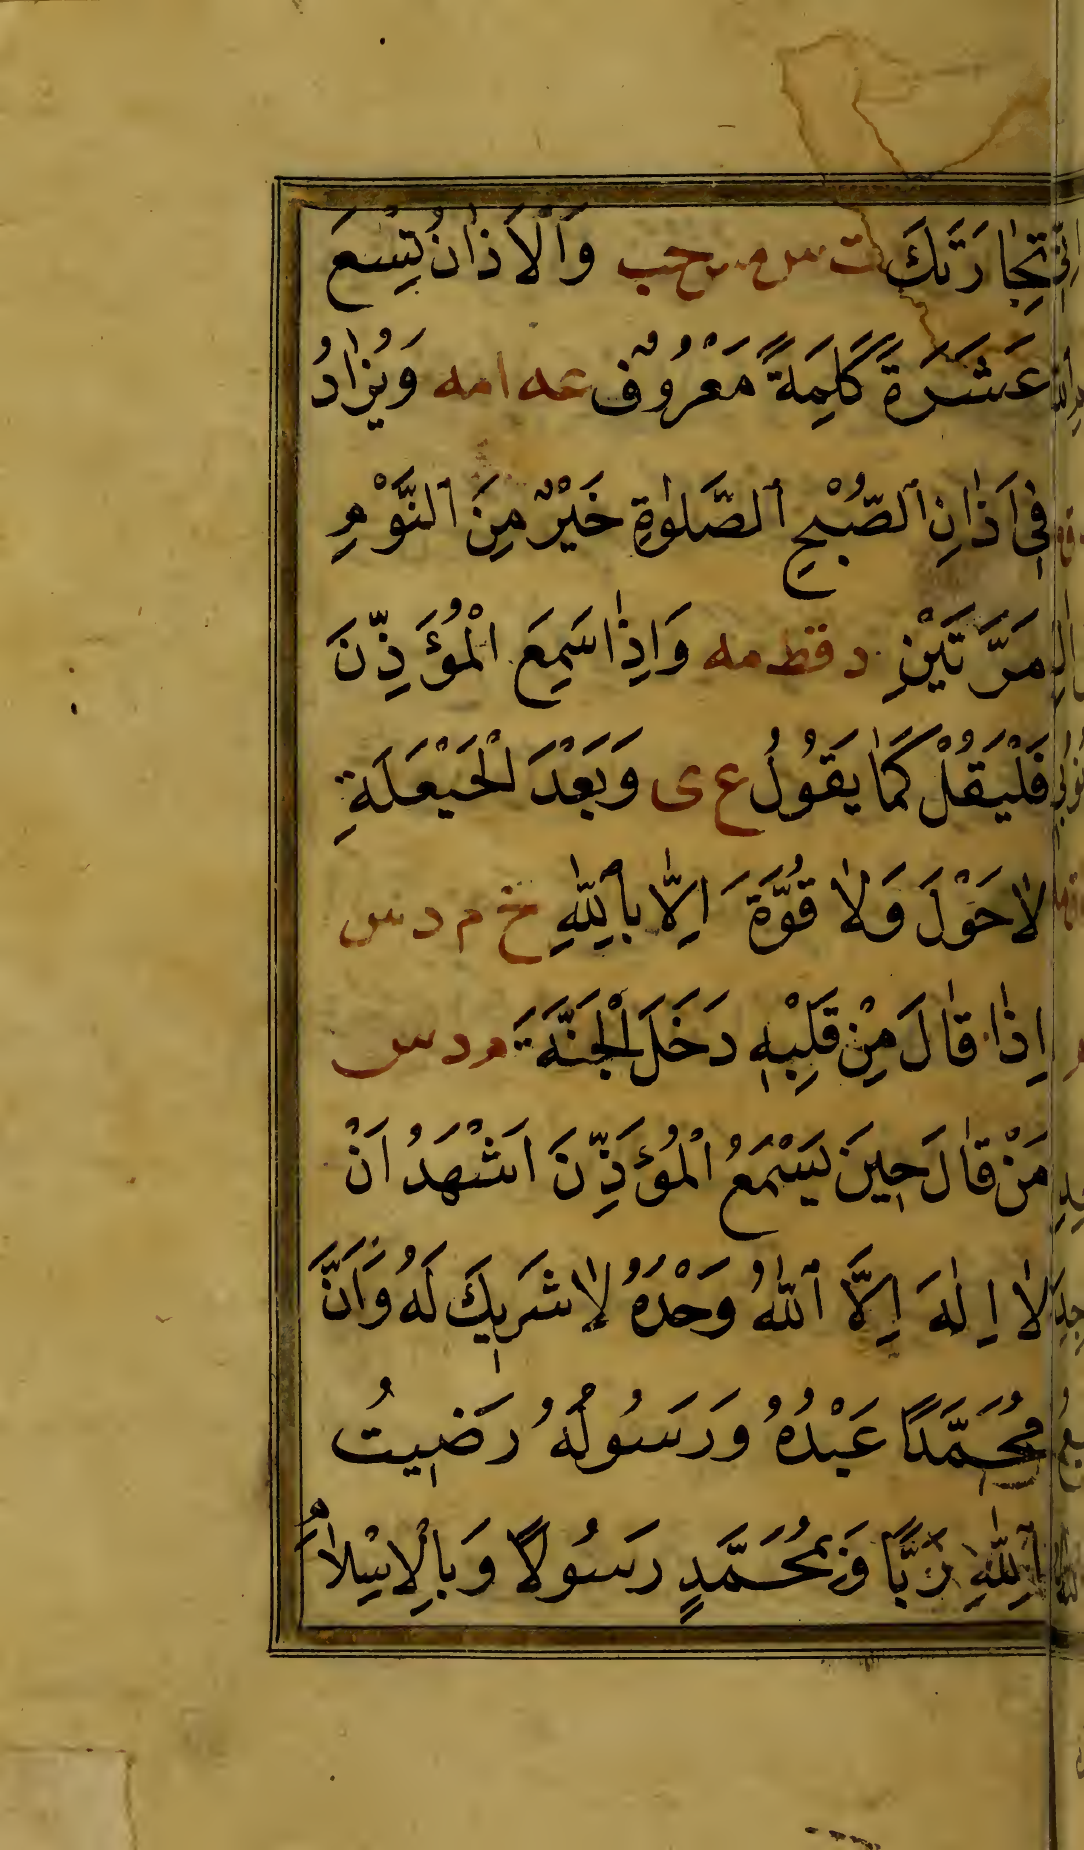 تِجَارَتَكَ ت س مس حب وَالْاَذَانُ تِسْعَ
عَشَرَةَ كَلِمَةً مَعْرُوفٌ عه امه وَيُزَادُ
فِى اَذَانِ الصُّبْحِ الصَّلٰوةِ خَيْرٌ مِنَ النَّوْمِ
مَرَّتَيْنِ د قط مه وَاِذَا سَمِعَ الْمُؤَذِّنَ
فَلْيَقُلْ كَمَا يَقُولُ ع ى وَبَعْدَ الْحَيْعَلَةِ
لَا حَوْلَ وَلَا قُوَّةَ اِلَّا بِاللّٰهِ خ م د س
اِذَا قَالَ مِنْ قَلْبِهِ دَخَلَ الْجَنَّةَ م د س
مَنْ قَالَ حِينَ يَسْمَعُ الْمُؤَذِّنَ اَشْهَدُ اَنْ
لَا اِلٰهَ اِلَّا اللّٰهُ وَحْدَهُ لَا شَرِيكَ لَهُ وَاَنَّ
مُحَمَّدًا عَبْدُهُ وَرَسُولُهُ رَضِيتُ
بِاللّٰهِ رَبًّا وَبِمُحَمَّدٍ رَسُولًا وَبِالْاِسْلَامِ